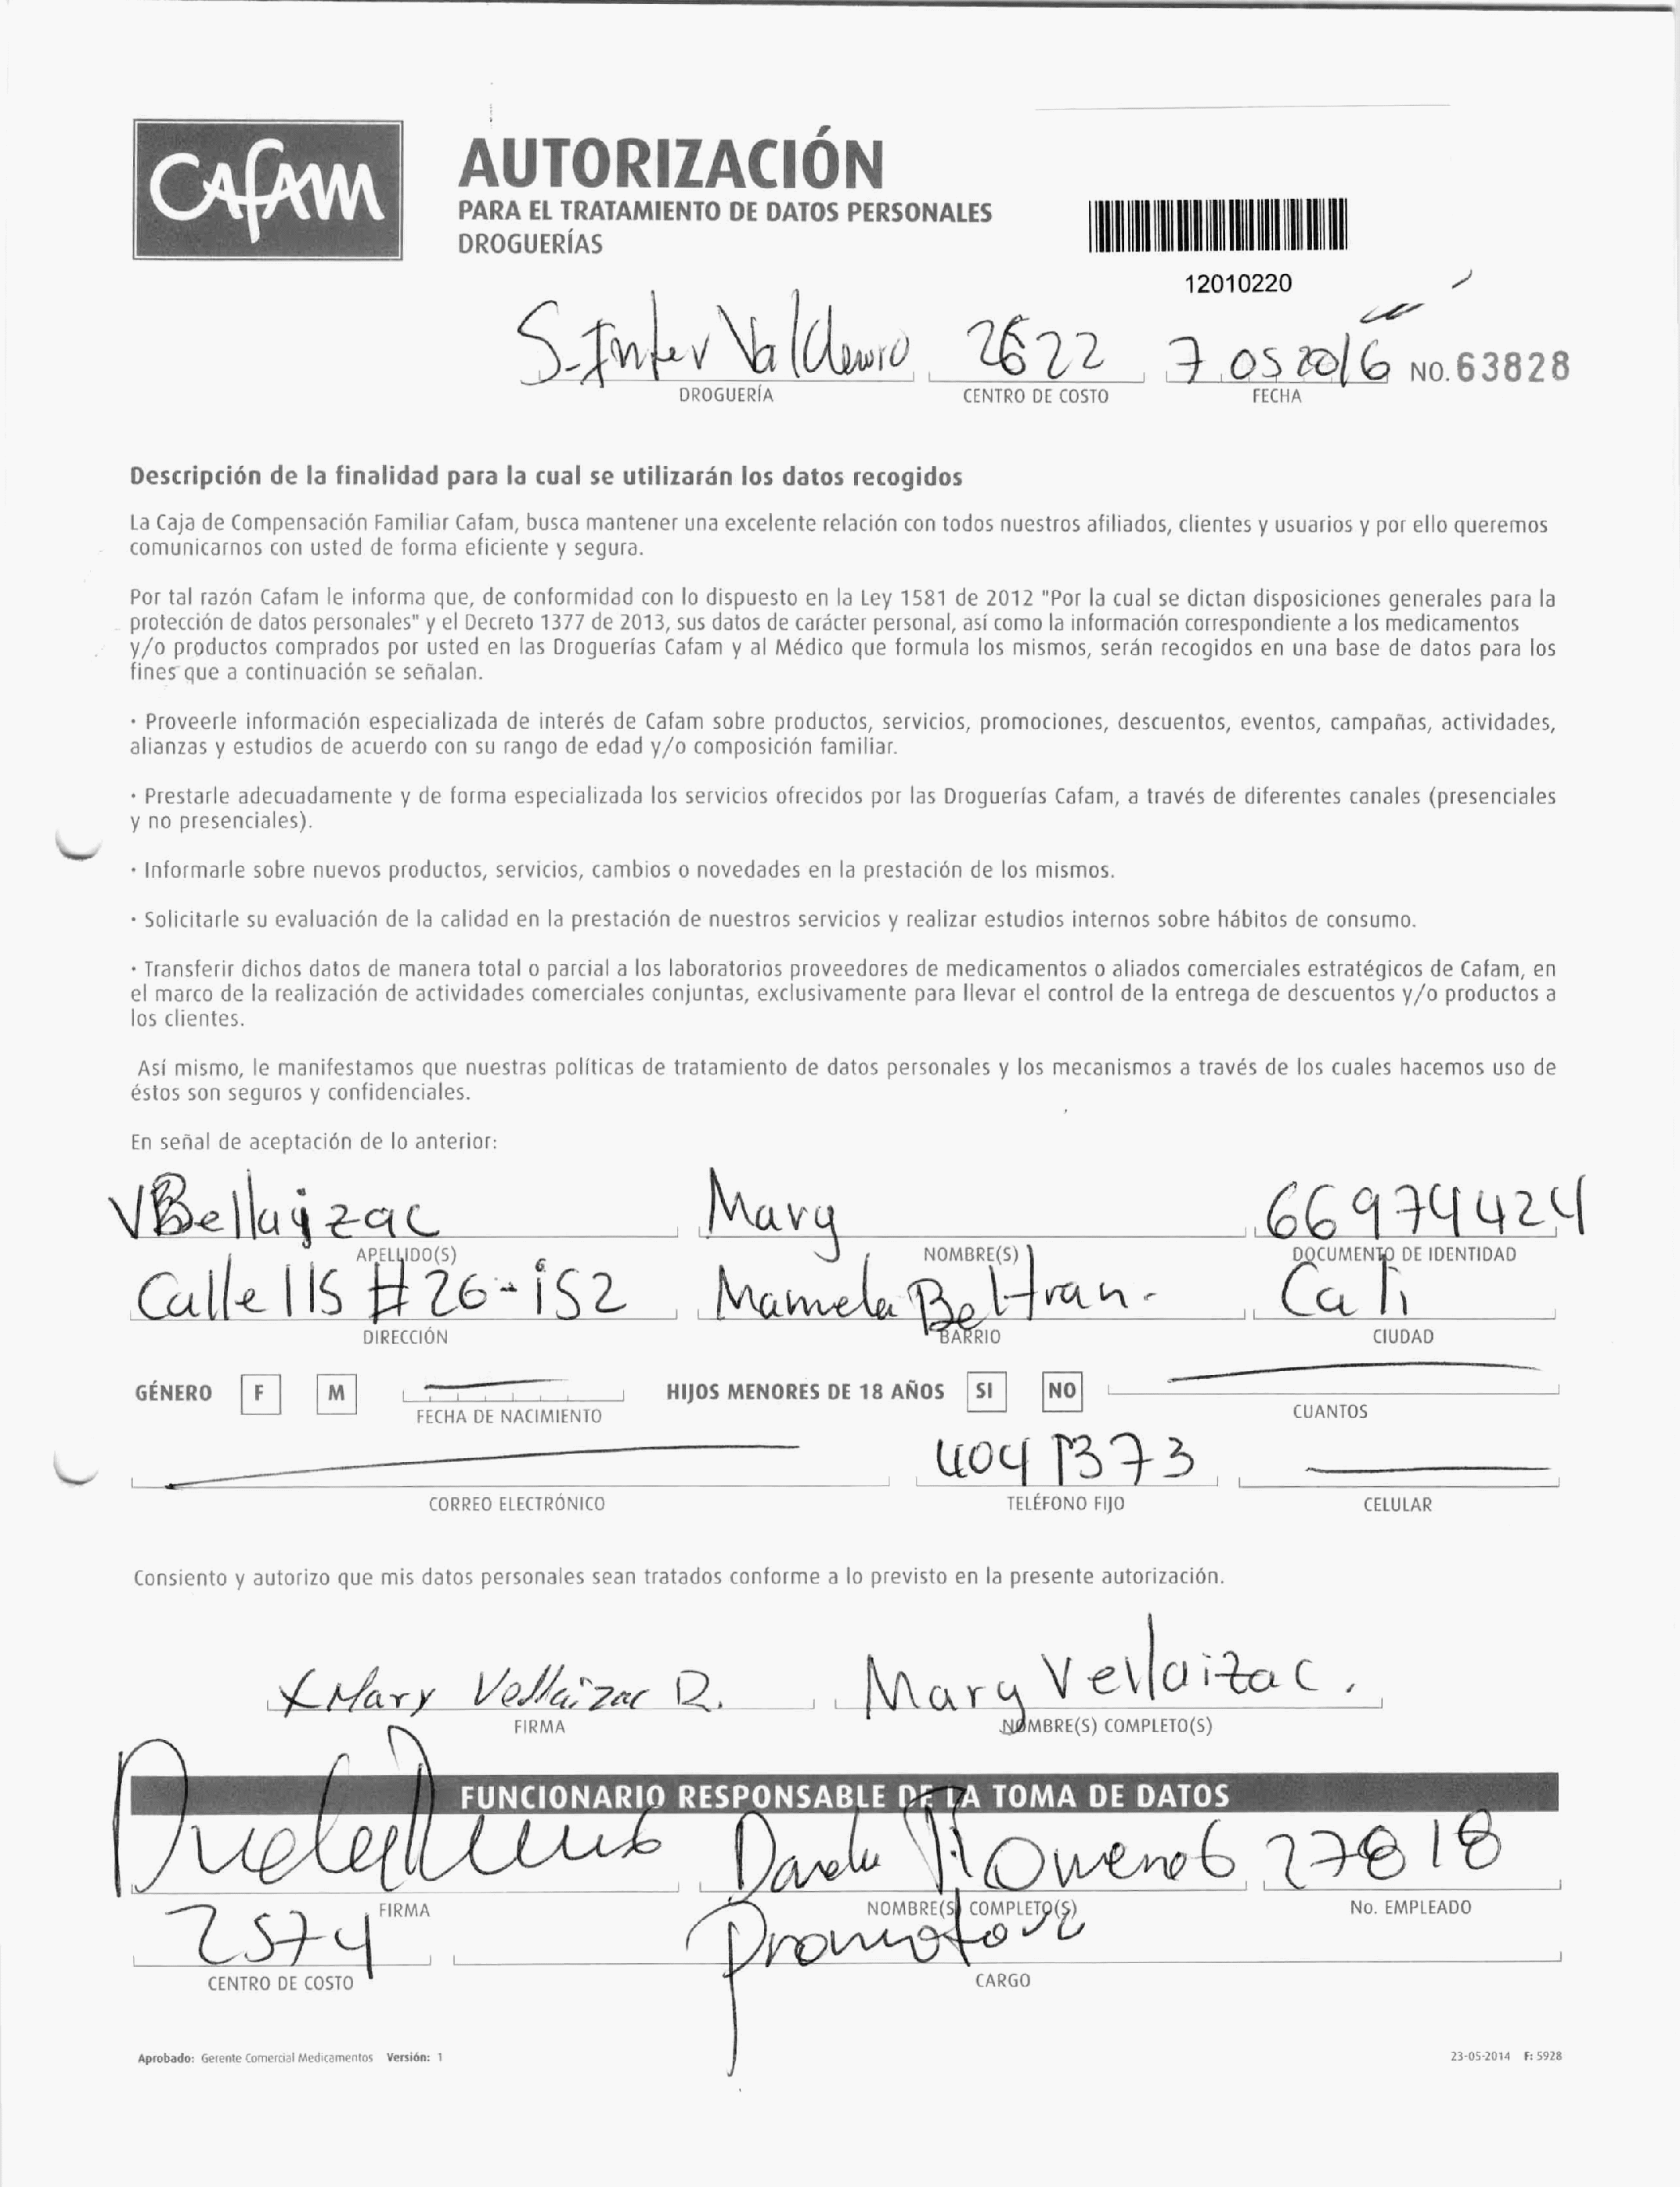 CAFAM
AUTORIZACIÓN
PARA EL TRATAMIENTO DE DATOS PERSONALES
DROGUERÍAS
12010220
S-Inter 2622 7 05 2016 NO. 63828
DROGUERÍA CENTRO DE COSTO FECHA
Descripción de la finalidad para la cual se utilizarán los datos recogidos
La Caja de Compensación Familiar Cafam, busca mantener una excelente relación con todos nuestros afiliados, clientes y usuarios y por ello queremos
comunicarnos con usted de forma eficiente y segura.
Por tal razón Cafam le informa que, de conformidad con lo dispuesto en la Ley 1581 de 2012 "Por la cual se dictan disposiciones generales para la
protección de datos personales" y el Decreto 1377 de 2013, sus datos de carácter personal, así como la información correspondiente a los medicamentos
y/o productos comprados por usted en las Droguerías Cafam y al Médico que formula los mismos, serán recogidos en una base de datos para los
fines que a continuación se señalan.
· Proveerle información especializada de interés de Cafam sobre productos, servicios, promociones, descuentos, eventos, campañas, actividades,
alianzas y estudios de acuerdo con su rango de edad y/o composición familiar.
· Prestarle adecuadamente y de forma especializada los servicios ofrecidos por las Droguerías Cafam, a través de diferentes canales (presenciales
y no presenciales).
· Informarle sobre nuevos productos, servicios, cambios o novedades en la prestación de los mismos.
· Solicitarle su evaluación de la calidad en la prestación de nuestros servicios y realizar estudios internos sobre hábitos de consumo.
· Transferir dichos datos de manera total o parcial a los laboratorios proveedores de medicamentos o aliados comerciales estratégicos de Cafam, en
el marco de la realización de actividades comerciales conjuntas, exclusivamente para llevar el control de la entrega de descuentos y/o productos a
los clientes.
Así mismo, le manifestamos que nuestras políticas de tratamiento de datos personales y los mecanismos a través de los cuales hacemos uso de
éstos son seguros y confidenciales.
En señal de aceptación de lo anterior:
Mary 66974424
APELLIDO(S) NOMBRE(S) DOCUMENTO DE IDENTIDAD
Calle 115 # 26-152 Beltran. Cali
DIRECCIÓN BARRIO CIUDAD
GÉNERO F M HIJOS MENORES DE 18 AÑOS SI NO
FECHA DE NACIMIENTO CUANTOS
404 1373
CORREO ELECTRÓNICO TELÉFONO FIJO CELULAR
Consiento y autorizo que mis datos personales sean tratados conforme a lo previsto en la presente autorización.
X Mary Vellaizac R. Mary Vellaizac.
FIRMA NOMBRE(S) COMPLETO(S)
FUNCIONARIO RESPONSABLE DE LA TOMA DE DATOS
27818
FIRMA NOMBRE(S) COMPLETO(S) No. EMPLEADO
2574 Promotora
CENTRO DE COSTO CARGO
Aprobado: Gerente Comercial Medicamentos Versión: 1 23-05-2014 F: 5928